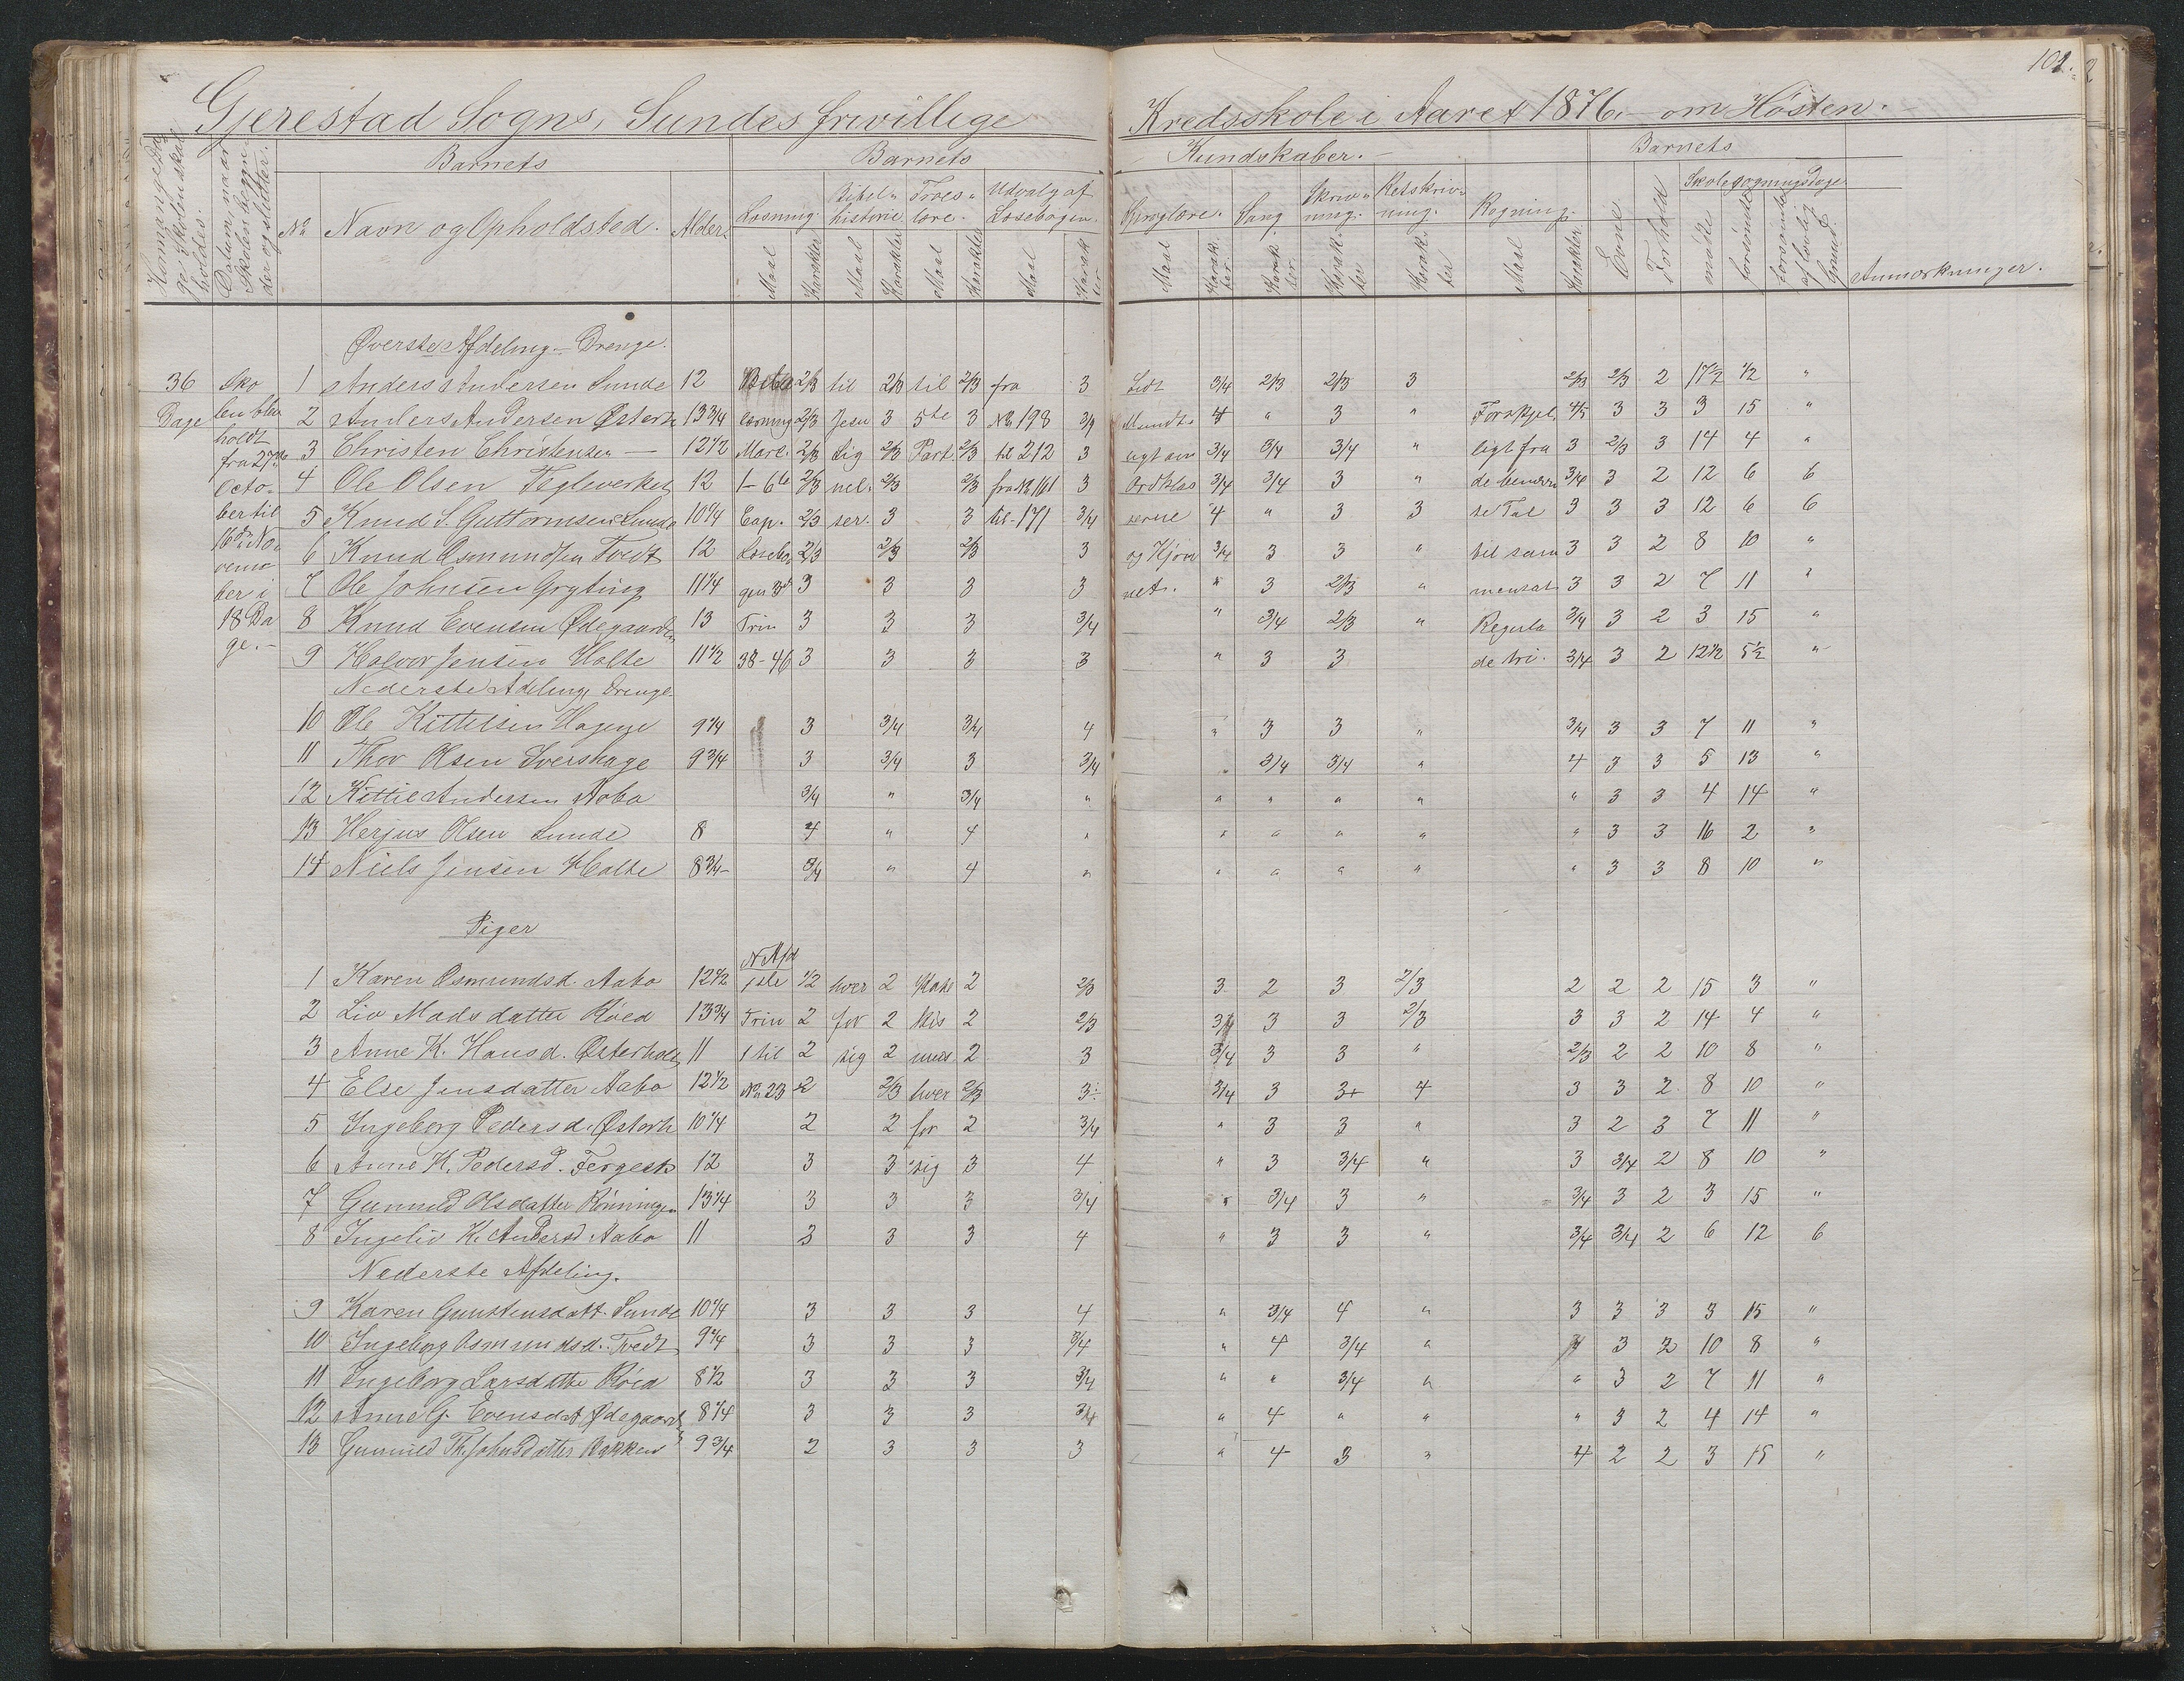 101.
Gjerestad Sogns, Sundes frivillige Kredsskole i Aaret 1876,- om Høsten.
Barnets Barnets Kundskaber.- Barnets
Datum, naar Skolen begynder og slutter.
No Navn og Opholdsted. Alder.
Læsning. Bibelhistorie. Troeslære. Udvalg af Læsebogen. Sproglære. Sang Skrivning. Retskrivning. Regning. Evne Forhold Skolesøgningsdage
Maal Karakter Maal Karakter Maal Karakter Maal Karakter Maal Karakter Karakter Karakter Karakter Maal Karakter mødte forsømte forsømte af lovlig Grund. Anmærkninger.
Øverste Afdeling.- Drenge.
36 Sko 1 Anders Andersen Sunde 12 2/3 til 2/3 til 2/3 fra 3 Lidt 3/4 2/3 2/3 3 2/3 2/3 2 17½ ½ "
Dage len blev 2 Anders Andersen Østerh 13 3/4 læsning 2/3 Jesu 3 5te 3 No 198 3/4 Mundt- 4 " 3 " Forskjel 4/5 3 3 3 15 "
holdt fra 27de 3 Christen Christensen — 12½ Marc. 2/3 lig 2/3 Part. 2/3 til 212 3 ligt om 3/4 3/4 3/4 " ligt fra 3 2/3 3 14 4 "
Octo- 4 Ole Olsen Teglverket 12 1-6te 2/3 nel. 2/3 2/3 fra No 161 3 Ordklas 3/4 3/4 3 " de benævn 3/4 3 2 12 6 6
ber til 5 Knud S. Guttormsen Sunde 10¼ Cap. 2/3 ser. 3 3 til-171 3/4 serne 4 " 3 3 te Tal 3 3 3 12 6 6
16de No- 6 Knud Osmundsen Tvedt 12 Læsebo 2/3 2/3 2/3 3 og Kjøn 3/4 3 3 " til sam 3 3 2 8 10 "
vem 7 Ole Johnsen Gryting 11¼ gen 3d 3 3 3 3 net. " 3 2/3 " mensat 3 3 2 7 11 "
ber i
18 Da 8 Knud Evensen Ødegaarden 13 Trin 3 3 3 3/4 " 3/4 2/3 " Regula 3/4 3 2 3 15 "
ge.- 9 Halvor Jensen Holte 11½ 38-46 3 3 3 3 " 3 3 de tri. 3/4 3 2 12½ 5½ "
Nederste Afdeling Drenge.
10 Ole Kittelsen Hagene 9¼ 3 3/4 3/4 4 " 3 3 " 3/4 3 3 7 11 "
11 Thov Olsen Svershage 9 3/4 3 3/4 3 3/4 3/4 3/4 " 4 3 3 5 13 "
12 Kittil Andersen Aabo 3/4 " 3/4 " " " " " " 3 3 4 14 "
13 Herjus Olsen Sunde 8 4 " 4 " " " " " " 3 3 16 2 "
14 Niels Jensen Holte 8 3/4- 3/4 " 4 " " " " " " 3 3 8 10 "
Piger
N Afd
1 Karen Osmundsd. Aabo 12½ 1ste ½ hver 2 Kate 2 2/3 3 2 3 2/3 2 2 2 15 3 "
2 Liv Madsdatter Röed 13 3/4 Trin 2 for 2 kis 2 2/3 3/4 3 3 2/3 3 3 2 14 4 "
3 Anne K. Hansd. Østerholt 11 1 til 2 sig 2 mus 2 3 3/4 3 3 " 2/3 2 2 10 8 "
4 Else Jensdatter Aabo 12½ No 23 2 2/3 hver 2/3 3÷ 3/4 3 3+ 4 3 3 2 8 10 "
5 Ingeborg Pedersd. Østerh 10¼ 2 2 for 2 3/4 " 3 3 " 3 2 3 7 11 "
6 Anne K. Pedersd. Fergest 12 3 3 sig 3 4 " 3 3/4 " 3 3/4 2 8 10 "
7 Gunnild Olsdatter Rönningen 13¼ 3 3 3 3/4 " 3/4 3 " 3/4 3 2 3 15 "
8 Ingeliv K. Andersd Aabo 11 3 3 3 4 " 3 3 " 3/4 3/4 2 6 12 6
Nederste Afdeling.
9 Karen Gunstensdatt. Sunde 10¼ 3 3 3 4 " 3/4 4 " 3 3 3 3 15 "
10 Ingeborg Osmundsd. Tvedt 9¼ 3 3 3 3/4 " 4 3/4 " 3 2 10 8 "
11 Ingeborg Larsdatter Röed 8½ 3 3 3 3/4 " " 3/4 " " 3 2 7 11 "
12 Anne G. Evensdat Ødegaarden 8¼ 3 3 3 3/4 " 4 " " " 3 2 4 14 "
13 Gunnild Th. Johnsdatter Bakken 9 3/4 2 3 3 3 " 4 3 " 4 2 2 3 15 "